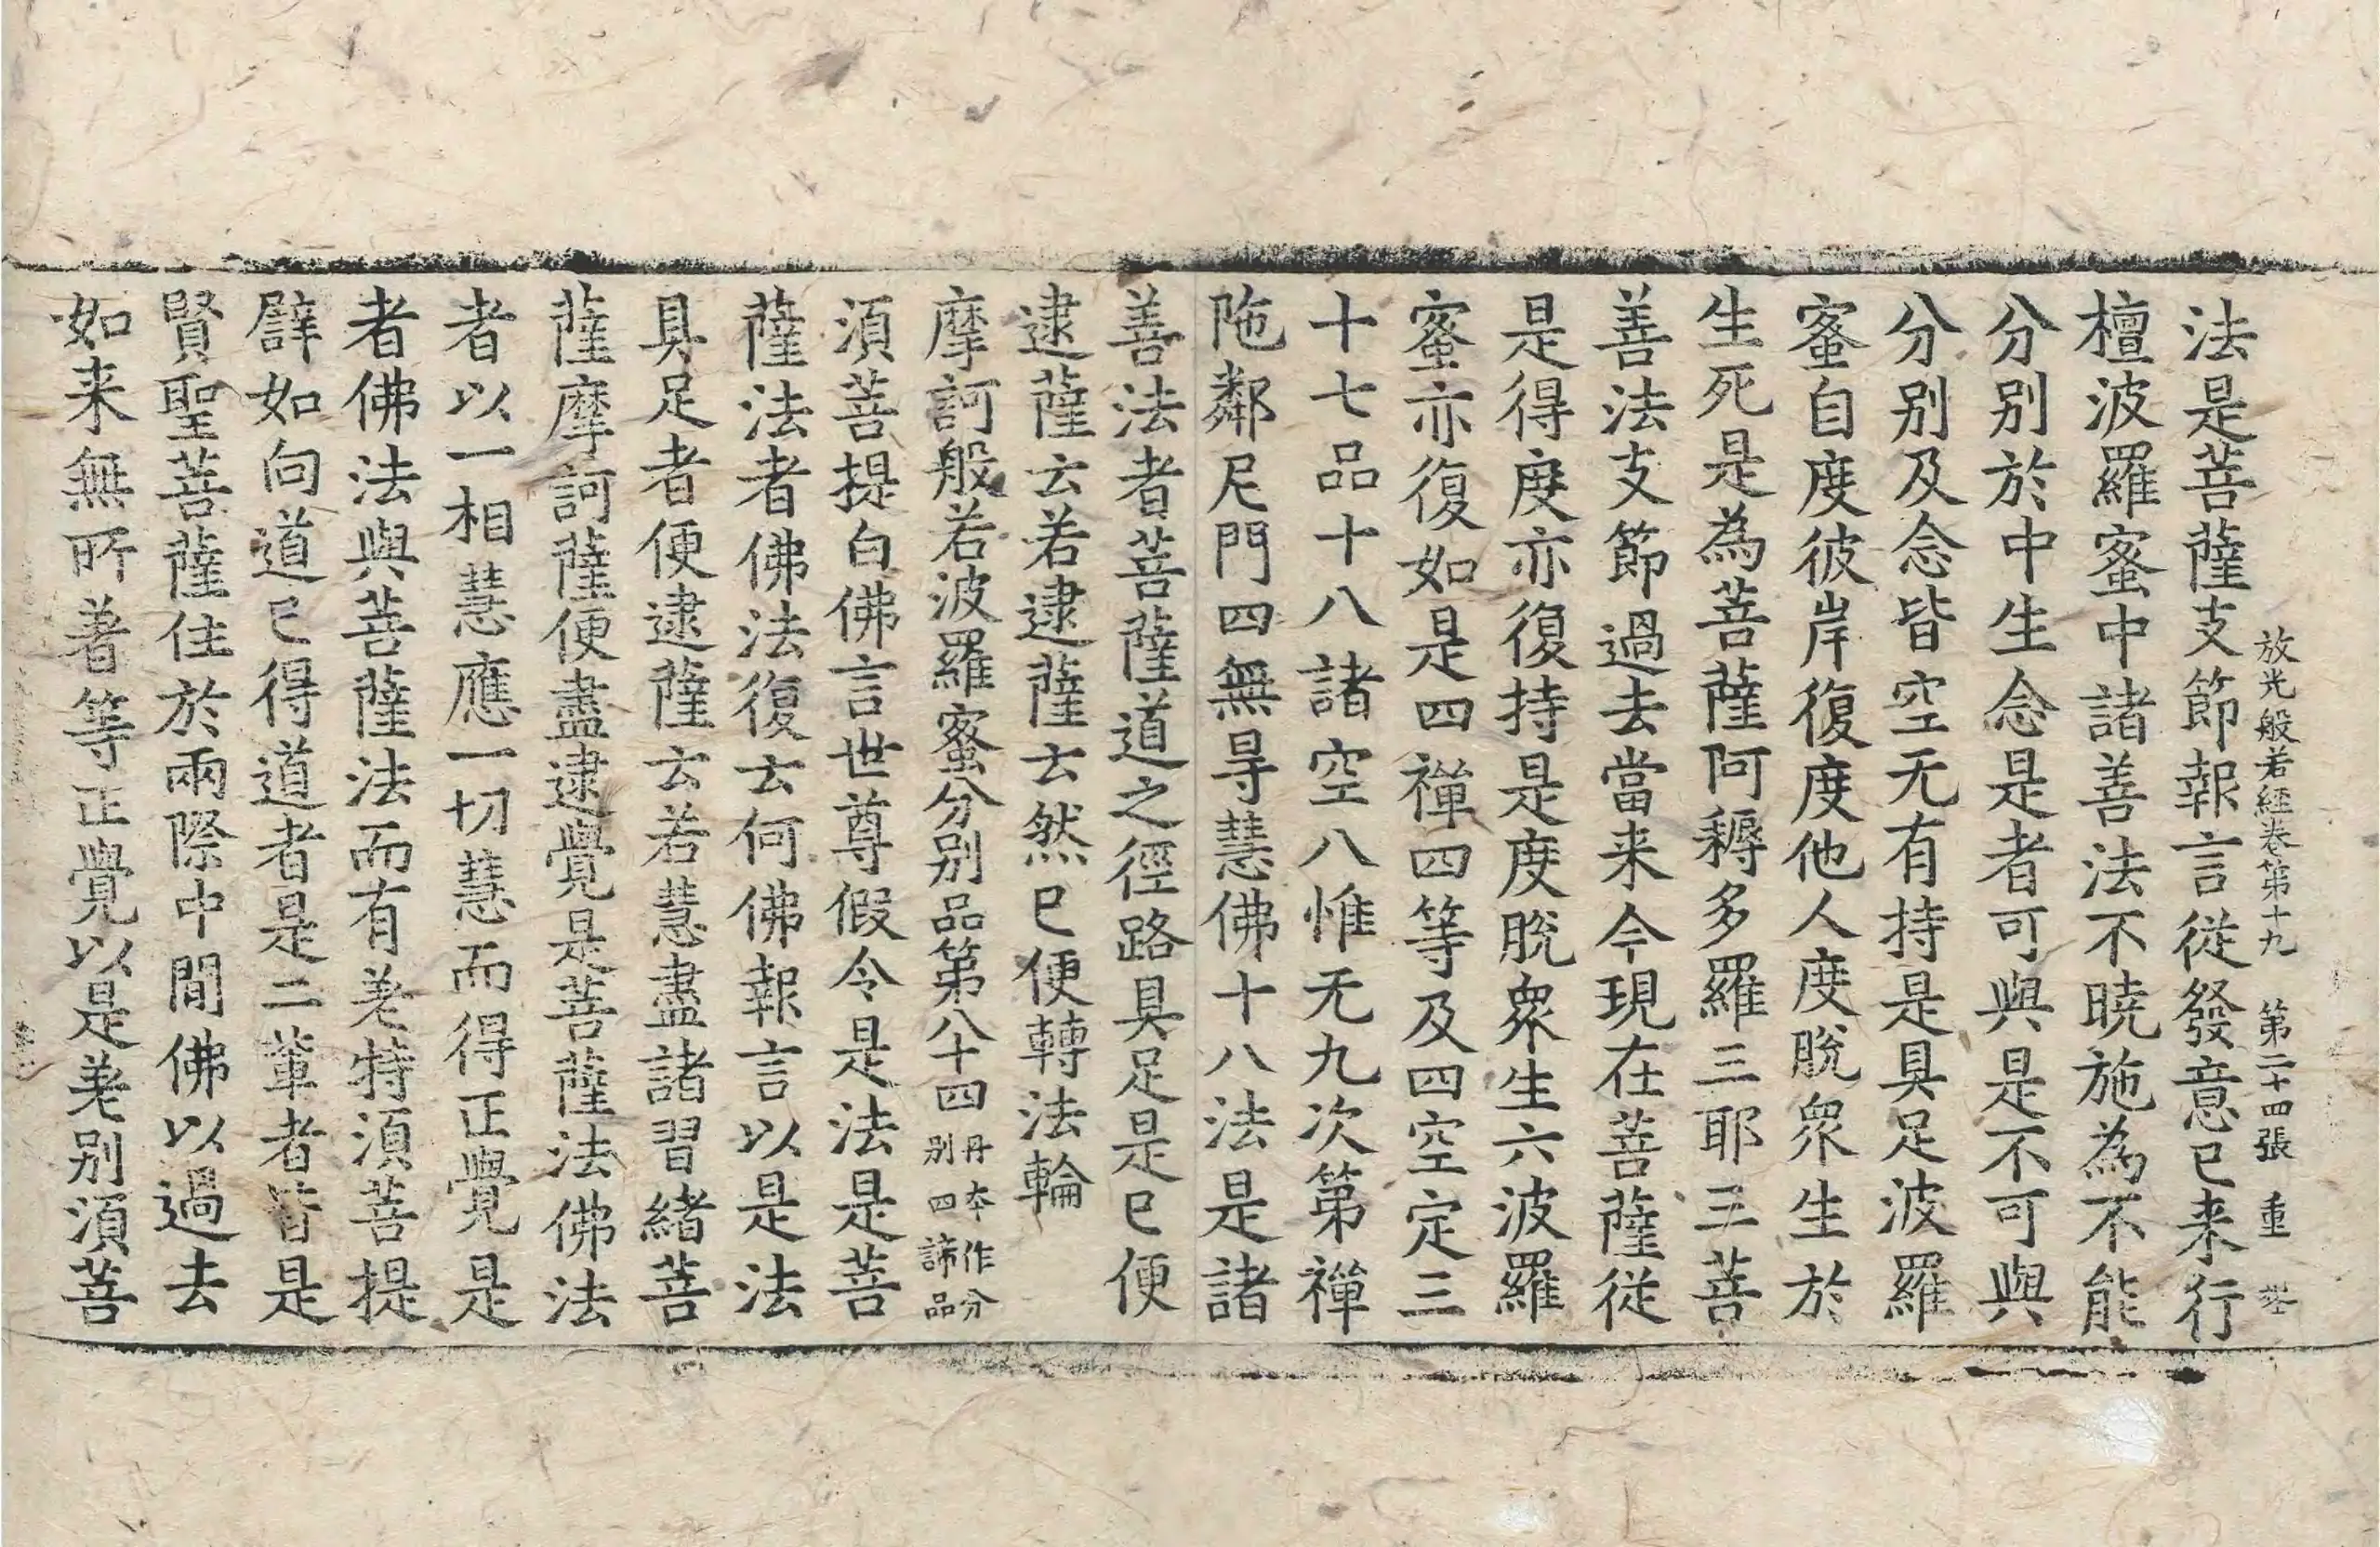 放光般若經卷第十九 第二十四張 重
法是菩薩支節報言從發意已来行
檀波羅蜜中諸善法不曉施為不能
分別於中生念是者可與是不可與
分別及念皆空无有持是具足波羅
蜜自度彼岸復度他人度脫衆生於
生死是為菩薩阿耨多羅三耶三菩
善法支節過去當来今現在菩薩從
是得度亦復持是度脫衆生六波羅
蜜亦復如是四禪四等及四空定三
十七品十八諸空八惟无九次第禪
陁鄰尼門四無㝵慧佛十八法是諸
善法者菩薩道之徑路具足是已便
逮薩云若逮薩云然已便轉法輪
摩訶般若波羅蜜分別品第八十四 丹本作分
別四諦品
須菩提白佛言世尊假令是法是菩
薩法者佛法復云何佛報言以是法
具足者便逮薩云若慧盡諸習緒菩
薩摩訶薩便盡逮覺是菩薩法佛法
者以一相慧應一切慧而得正覺是
者佛法與菩薩法而有差特須菩提
譬如向道已得道者是二輩者皆是
賢聖菩薩住於兩際中間佛以過去
如来無所著等正覺以是差別須菩